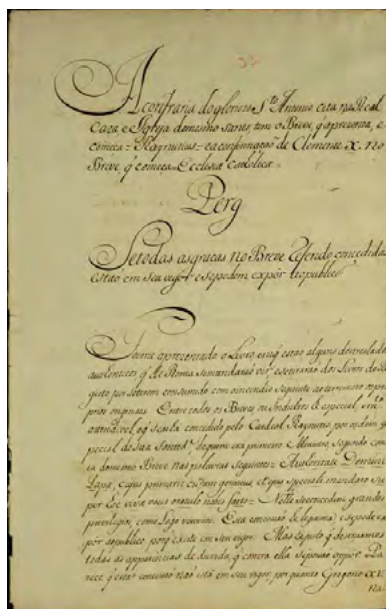 A confraria do glorioso S.to Antonio cita na Real
Caza e Igreja do mesmo Santo, tem o Breve, q' aprezenta, e
começa = Raynutius = e a confirmaçaõ de Clemente X. no
Breve, q' começa = Ecclesiæ Catholicæ
Perg
Se todas as graças no Breve referido concedidas
estaõ em seu vigor e se podem expôr ao publico
Foi me aprezentado o Livro em q' estaõ alguns dos treslados
autenticos q' de Roma se mandaraõ vir, e se tiraraõ dos Livros do Re
gisto por se terem consumido com o incendio seguinte ao terremoto os pro
prios originaes. Entre todos os Breves ou Indultos he especial, e m.to
attendivel o q' se acha concedido pelo Cardeal Raynucio, por ordem es
pecial de Sua Santid.e de quem era primeiro Ministro, segundo cons
ta do mesmo Breve nas palavras seguintes = Autoritate Domini
Papæ, cujus primarie curam gerimus, et ejus speciali mandato su
per hoc vivæ vocis oraculo nobis facto = Nelle se concedem grandes
privilegios, como logo veremos. Esta concessaõ he legitima, e se pode ex
pôr ao publico, porq' existe em seu vigor. Mas
todas as apparencias de duvida, q' contra ella se possaõ oppor. Pa
rece q' esta concessaõ naõ está em seu vigor, por quanto Gregorio XV
na